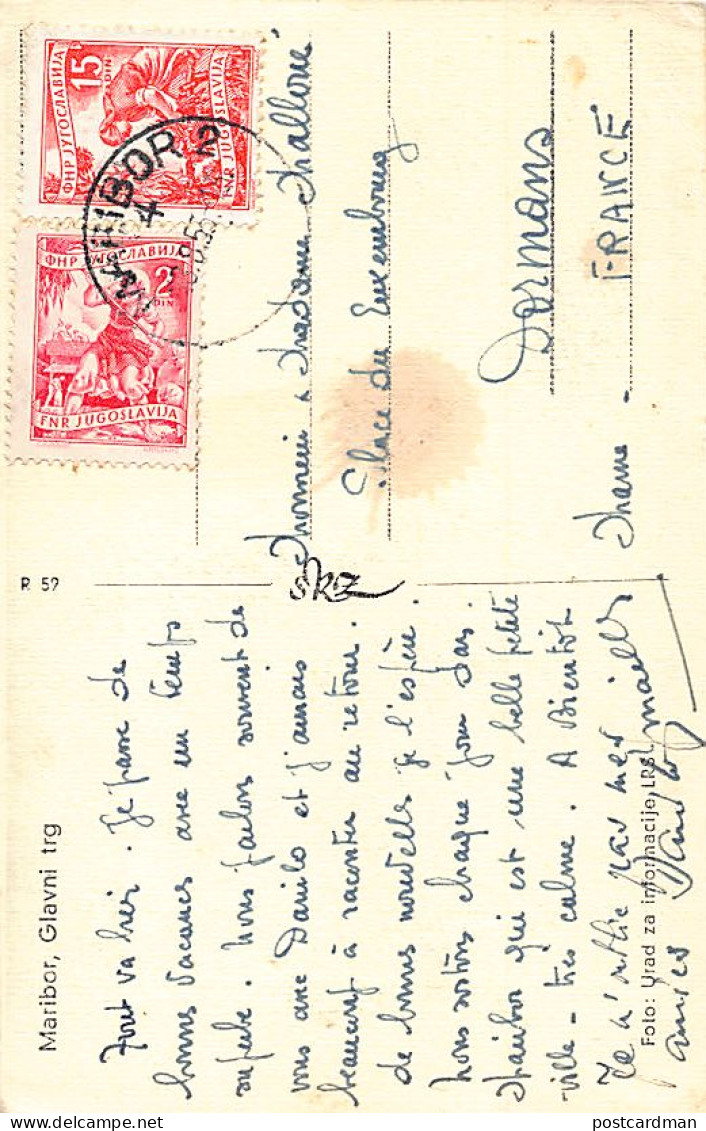 Maribor, Glavni trg
Tout va bien. Je passe de
bonnes vacances avec un temps
superbe. Nous parlons souvent de
vous avec Danilo et j'aurais
beaucoup à raconter au retour.
de bonnes nouvelles je l'espère.
Nous sortons chaque jour dans
Maribor qui est une belle petite
ville - très calme. A Bientôt
Je n'oublie pas mes
amies
Foto: Urad za informacije LRS
R 59
SKZ
Monsieur & Madame
Place du Luxembourg
Dormans
Marne - FRANCE
ФНР ЈУГОСЛАВИЈА
15
DIN
FNR JUGOSLAVIJA
ФНР ЈУГОСЛАВИЈА
2
DIN
FNR JUGOSLAVIJA
MARIBOR 2
postcardman